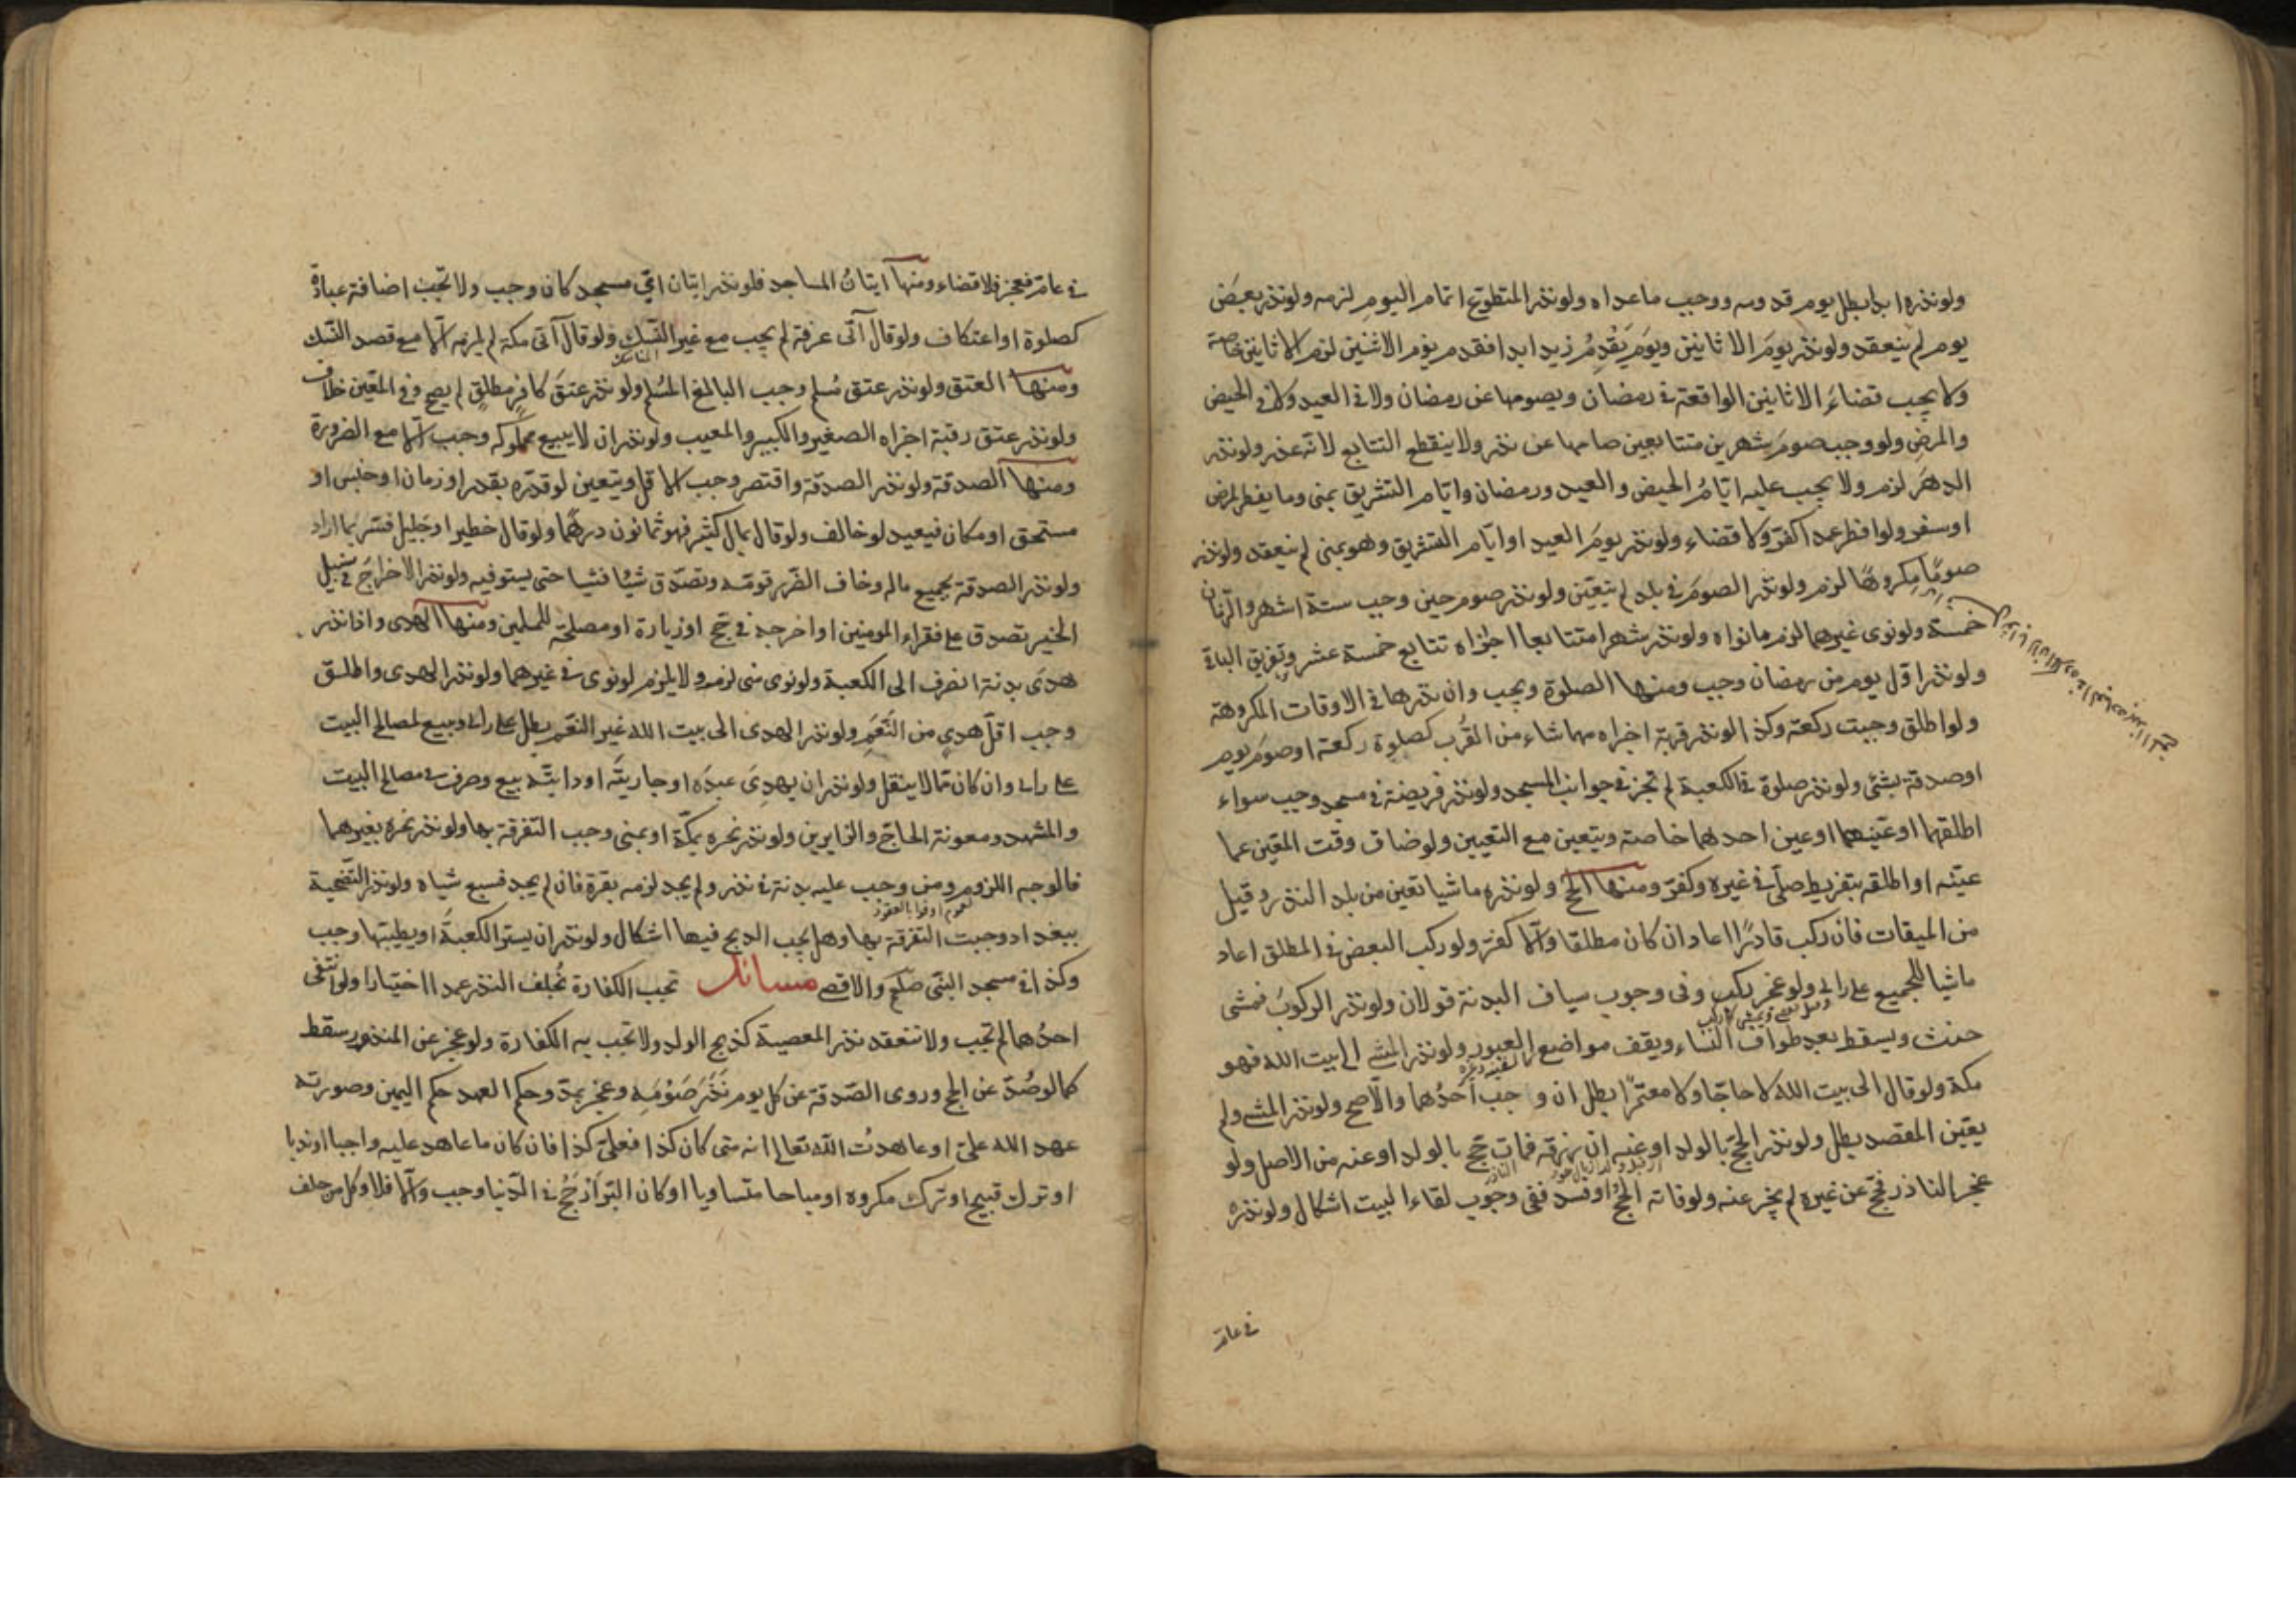 ولو نذره ابدا بطل يوم قدومه ووجب ما عداه ولو نذر المتطوع اتمام اليوم لزمه ولو نذر بعض
يوم لم ينعقد ولو نذر يوم الاثانين ويوم يقدم زيد ابدا فقدم يوم الاثنين لزم الاثانين خاصة
ولا يجب قضاء الاثانين الواقعة في رمضان ويصومها عن رمضان ولا في العيد ولا في الحيض
والمرض ولو وجب صوم شهرين متتابعين صامها عن نذر ولا ينقطع التتابع لانه عذر ولو نذر
الدهر لزم ولا يجب عليه ايام الحيض والعيد ورمضان وايام التشريق بمنى وما يفطر لمرض
او سفر ولو افطر عمدا كفر ولا قضاء ولو نذر يوم العيد او ايام التشريق وهو بمنى لم ينعقد ولو نذر
صوما مكروها لزم ولو نذر الصوم في بلد لم يتعين ولو نذر صوم حين وجب ستة اشهر والزمان
خمسة ولو نوى غيرهما لزم ما نواه ولو نذر شهرا متتابعا اجزاه تتابع خمسة عشر وتفريق الباقي
ولو نذر اول يوم من رمضان وجب ومنها الصلوة ويجب وان نذرها في الاوقات المكروهة
ولو اطلق وجبت ركعة وكذا لو نذر قربة اجزاه مهما شاء من القرب كصلوة ركعة او صوم يوم
او صدقة بشئ ولو نذر صلوة في الكعبة لم تجز في جوانب المسجد ولو نذر فريضة في مسجد وجب سواء
اطلقها او عينهما او عين احدهما خاصة ويتعين مع التعيين ولو ضاق وقت المعين عما
عينه او اطلقه بتفريط صلى في غيره وكفر ومنها الحج ولو نذره ماشيا تعين من بلد النذر وقيل
من الميقات فان ركب قادرا اعاد ان كان مطلقا والا كفر ولو ركب البعض في المطلق اعاد
ماشيا للجميع على راى ولو عجز ركب وفى وجوب سياق البدنة قولان ولو نذر الركوب فمشى
حنث ويسقط بعد طواف النساء ويقف مواضع العبور ولو نذر المشى الى بيت الله فهو
مكة ولو قال الى بيت الله لا حاجا ولا معتمرا بطل ان وجب احدهما والاصح ولو نذر المشى ولم
يعين المقصد بطل ولو نذر الحج بالولد او عنه ان رزقه فمات حج بالولد او عنه من الاصل ولو
عجز الناذر فحج عن غيره لم يجز عنه ولو فاته الحج او فسد ففى وجوب لقاء البيت اشكال ولو نذره
في عامه
في عامه فعجز فلا قضاء ومنها اتيان المساجد فلو نذر اتيان اى مسجد كان وجب ولا تجب اضافة عبادة
كصلوة او اعتكاف ولو قال آتى عرفة لم يجب مع غير النسك ولو قال آتى مكة لم يلزمه الا مع قصد النسك
ومنها العتق ولو نذر عتق مسلم وجب البالغ المسلم ولو نذر عتق كافر مطلق لم يصح وفى المعين خلاف
ولو نذر عتق رقبة اجزاه الصغير والكبير والمعيب ولو نذر ان لا يبيع مملوكه وجب الا مع الضرورة
ومنها الصدقة ولو نذر الصدقة واقتصر وجب الاقل ويتعين لو قدره بقدر او زمان او جنس او
مستحق او مكان فيعيد لو خالف ولو قال بمال كثير فهو ثمانون درهما ولو قال خطير او جليل فسر بما اراد
ولو نذر الصدقة بجميع ماله وخاف الضرر قومه وتصدق شيئا فشيا حتى يستوفيه ولو نذر الاخراج في سبيل
الخير تصدق على فقراء المومنين او اخرجه في حج او زيارة او مصلحة للمسلمين ومنها الهدى واذا نذر
هدى بدنة انصرف الى الكعبة ولو نوى منى لزم ولا يلزم لو نوى في غيرهما ولو نذر الهدى واطلق
وجب اقل هدى من النعم ولو نذر الهدى الى بيت الله غير النعم بطل على راى وبيع لمصالح البيت
على راى وان كان مما لا ينقل ولو نذر ان يهدى عبده او جاريته او دابته بيع وصرف في مصالح البيت
والمشهد ومعونة الحاج والزايرين ولو نذر نحره بمكة او بمنى وجب التفرقة بها ولو نذر نحره بغيرهما
فالوجه اللزوم ومن وجب عليه بدنة في نذر ولم يجد لزمه بقرة فان لم يجد فسبع شياه ولو نذر التضحية
لعموم اوفوا بالعقود
ببغداد وجبت التفرقة بها وهل يجب الذبح فيها اشكال ولو نذر ان يستر الكعبة او يطيبها وجب
وكذا في مسجد النبى صلعم والاقصى مسائل تجب الكفارة بخلف النذر عمدا اختيارا ولو انتفى
احدهما لم تجب ولا تنعقد نذر المعصية كذبح الولد ولا تجب به الكفارة ولو عجز عن المنذور سقط
كما لو صد عن الحج وروى الصدقة عن كل يوم نذر صومه وعجز بمد وحكم العهد حكم اليمين وصورته
عهد الله على او عاهدت الله تعالى انه متى كان كذا فعلى كذا فان كان ما عاهد عليه واجبا او ندبا
او ترك قبيح او ترك مكروه او مباحا متساويا او كان البر ارجح في الدنيا وجب والا فلا وكل من حلف